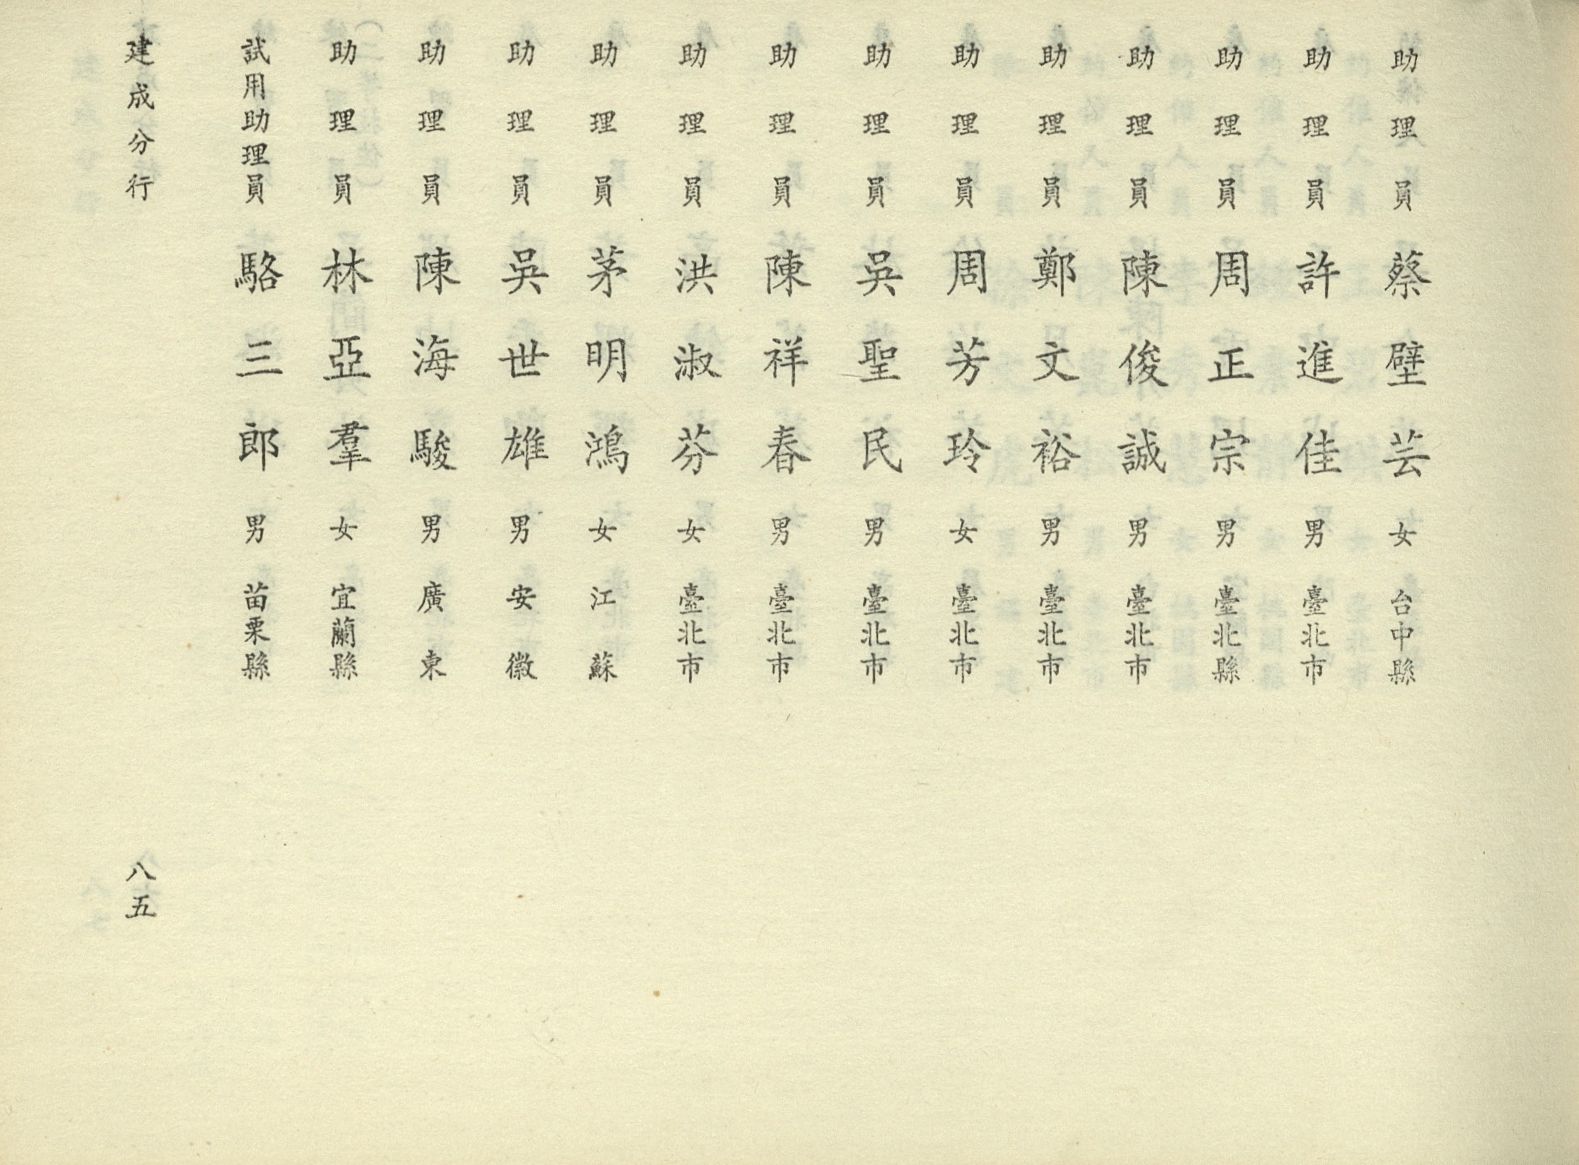 助理員 蔡壁芸 女 台中縣
助理員 許進佳 男 臺北市
助理員 周正宗 男 臺北縣
助理員 陳俊誠 男 臺北市
助理員 鄭文裕 男 臺北市
助理員 周芳玲 女 臺北市
助理員 吳聖民 男 臺北市
助理員 陳祥春 男 臺北市
助理員 洪淑芬 女 臺北市
助理員 茅明鴻 女 江蘇
助理員 吳世雄 男 安徽
助理員 陳海駿 男 廣東
助理員 林亞羣 女 宜蘭縣
試用助理員 駱三郎 男 苗栗縣
建成分行 八五